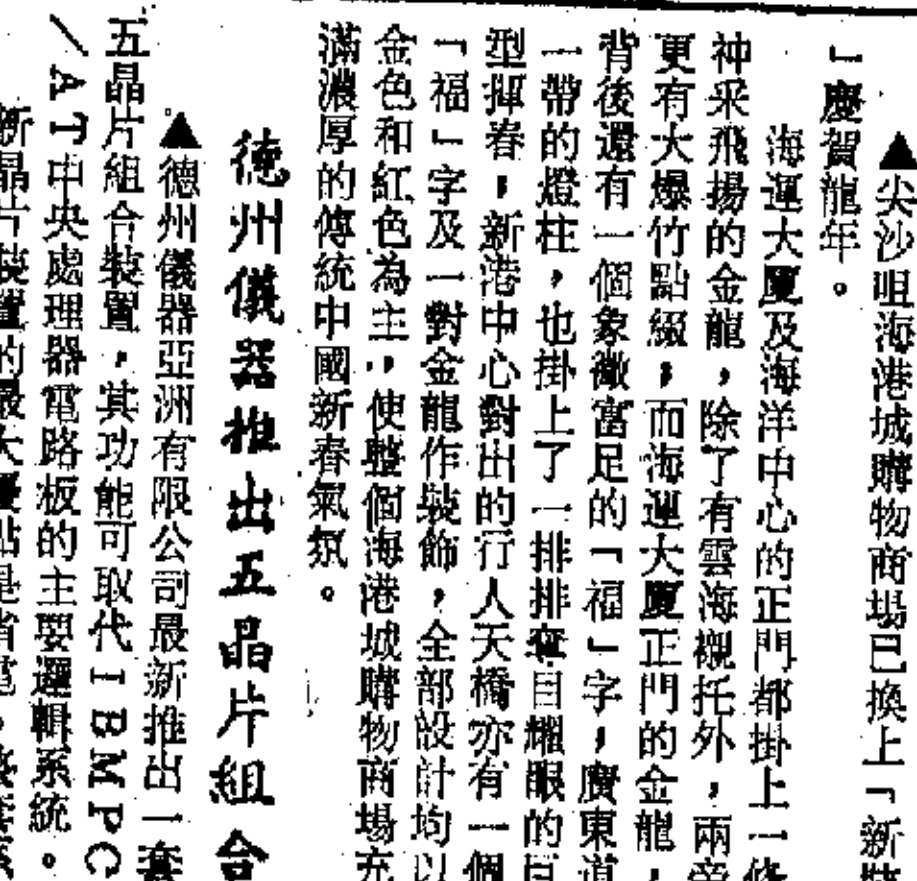 ▲尖沙咀海港城購物商場已換上「新
」慶賀龍年。
海運大廈及海洋中心的正門都掛上一條
神采飛揚的金龍，除了有雲海襯托外，兩旁
更有大爆竹點綴，而海運大廈正門的金龍，
背後還有一個象徵富足的「福」字，廣東道
一帶的燈柱，也掛上了一排排奪目耀眼的巨
型揮春，新港中心對出的行人天橋亦有一個
「福」字及一對金龍作裝飾，全部設計均以
金色和紅色為主，使整個海港城購物商場充
滿濃厚的傳統中國新春氣氛。
德州儀器推出五晶片組合
▲德州儀器亞洲有限公司最新推出一套
五晶片組合裝置，其功能可取代IBMPC
/AT中央處理器電路板的主要邏輯系統。
新晶片裝置的最大優點是省電。